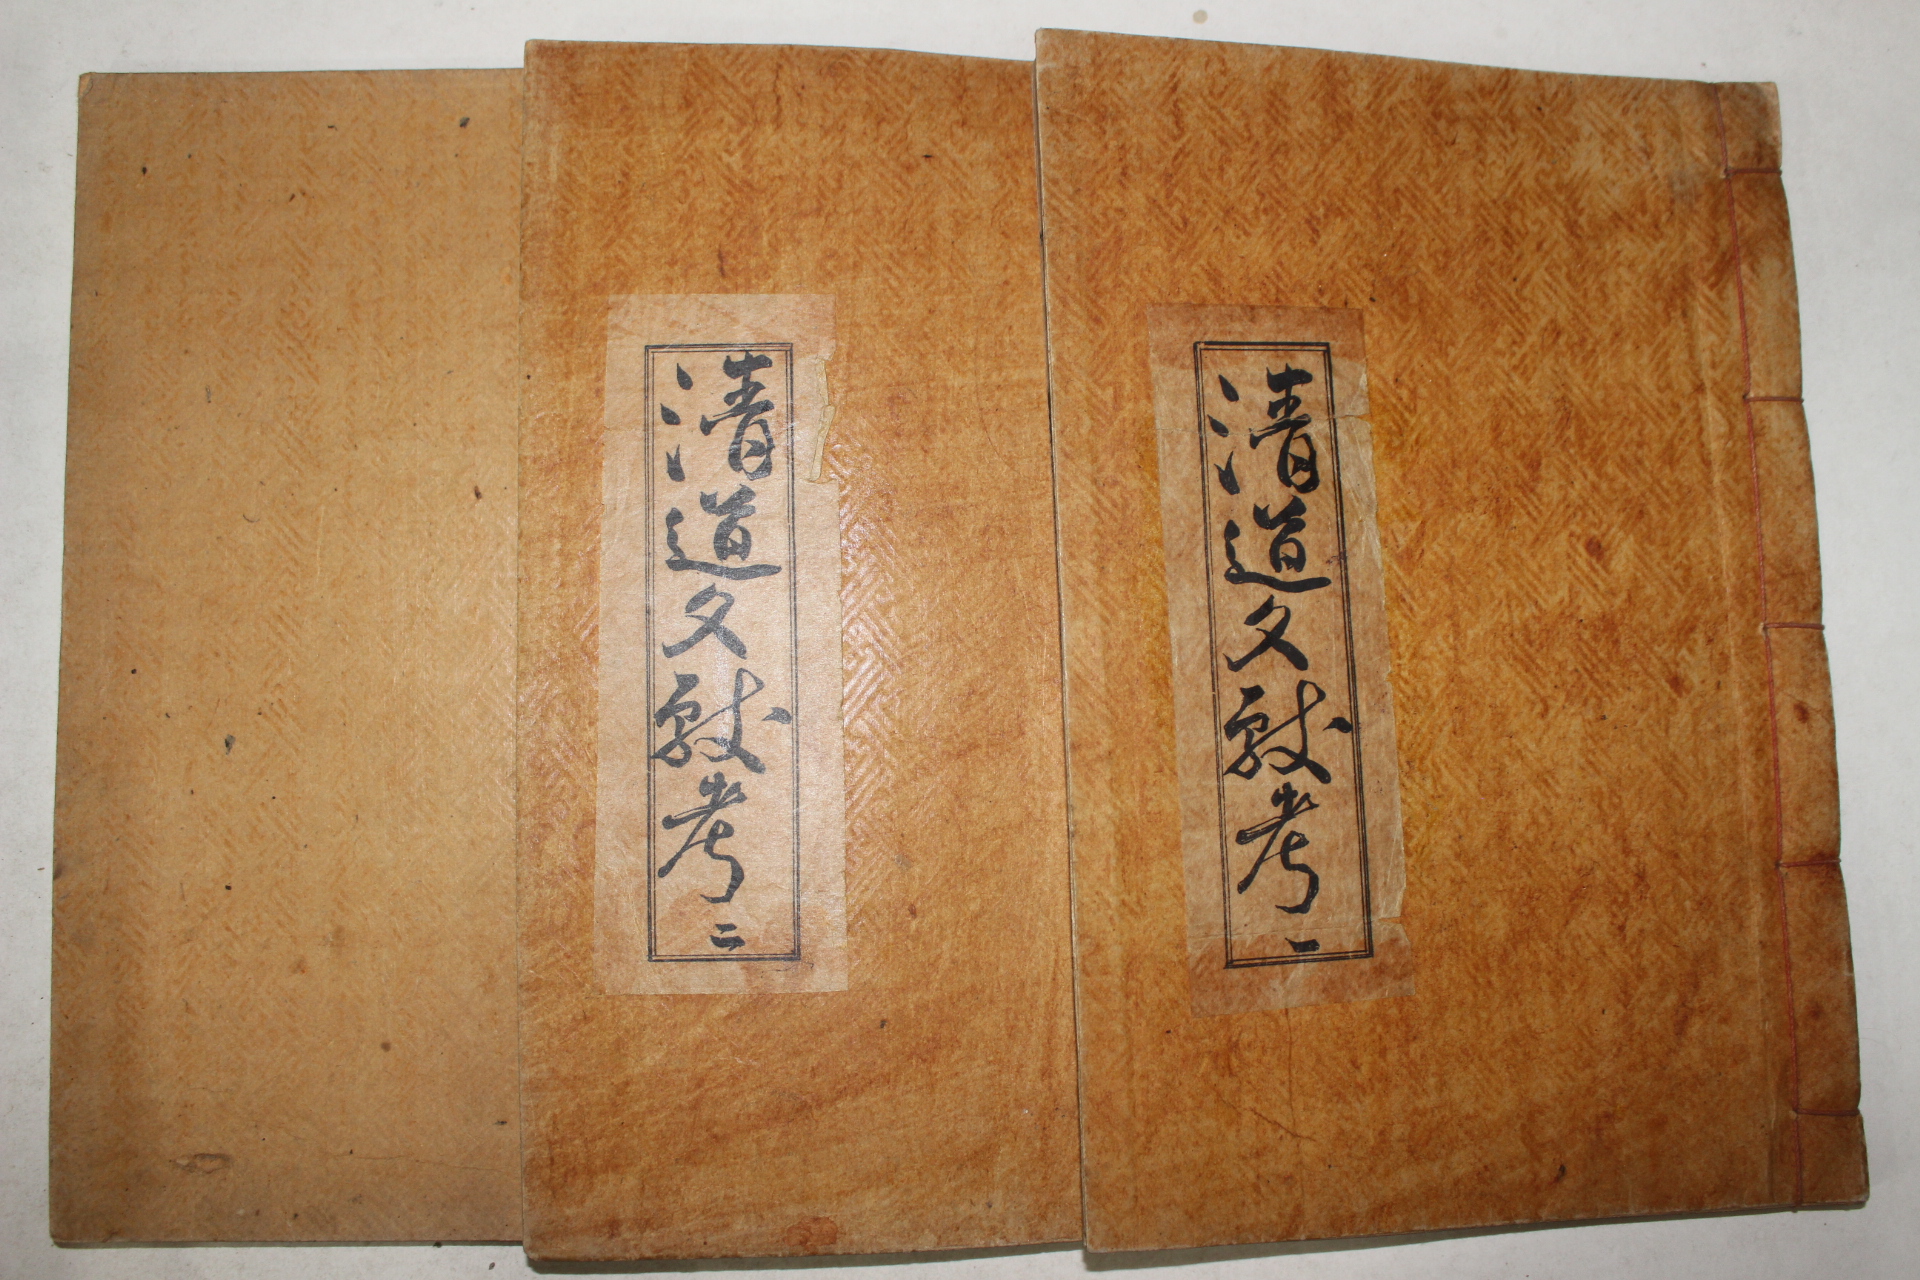 清道文獻考 一
清道文獻考 二